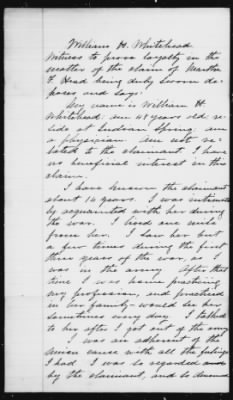 William H. Whitehead
Witness to prove loyalty in the
matter of the claim of Martha
F. Head being duly sworn de-
poses and says:
My name is William H.
Whitehead: am 41 years old re-
side at Indian Spring: am
a physician. Am not re-
lated to the claimant. I have
no beneficial interest in this
claim.
I have known the claimant
about 14 years. I was intimate
ly acquainted with her during
the war. I lived one mile
from her. I saw her but
a few times during the first
three years of the war, as I
was in the army. After that
time I was home practicing
my profession, and practiced
in her family: would see her
sometimes every day. I talked
to her after I got out of the army
I was an adherent of the
union cause with all the feelings
I had. I was so regarded and
by the claimant, and so